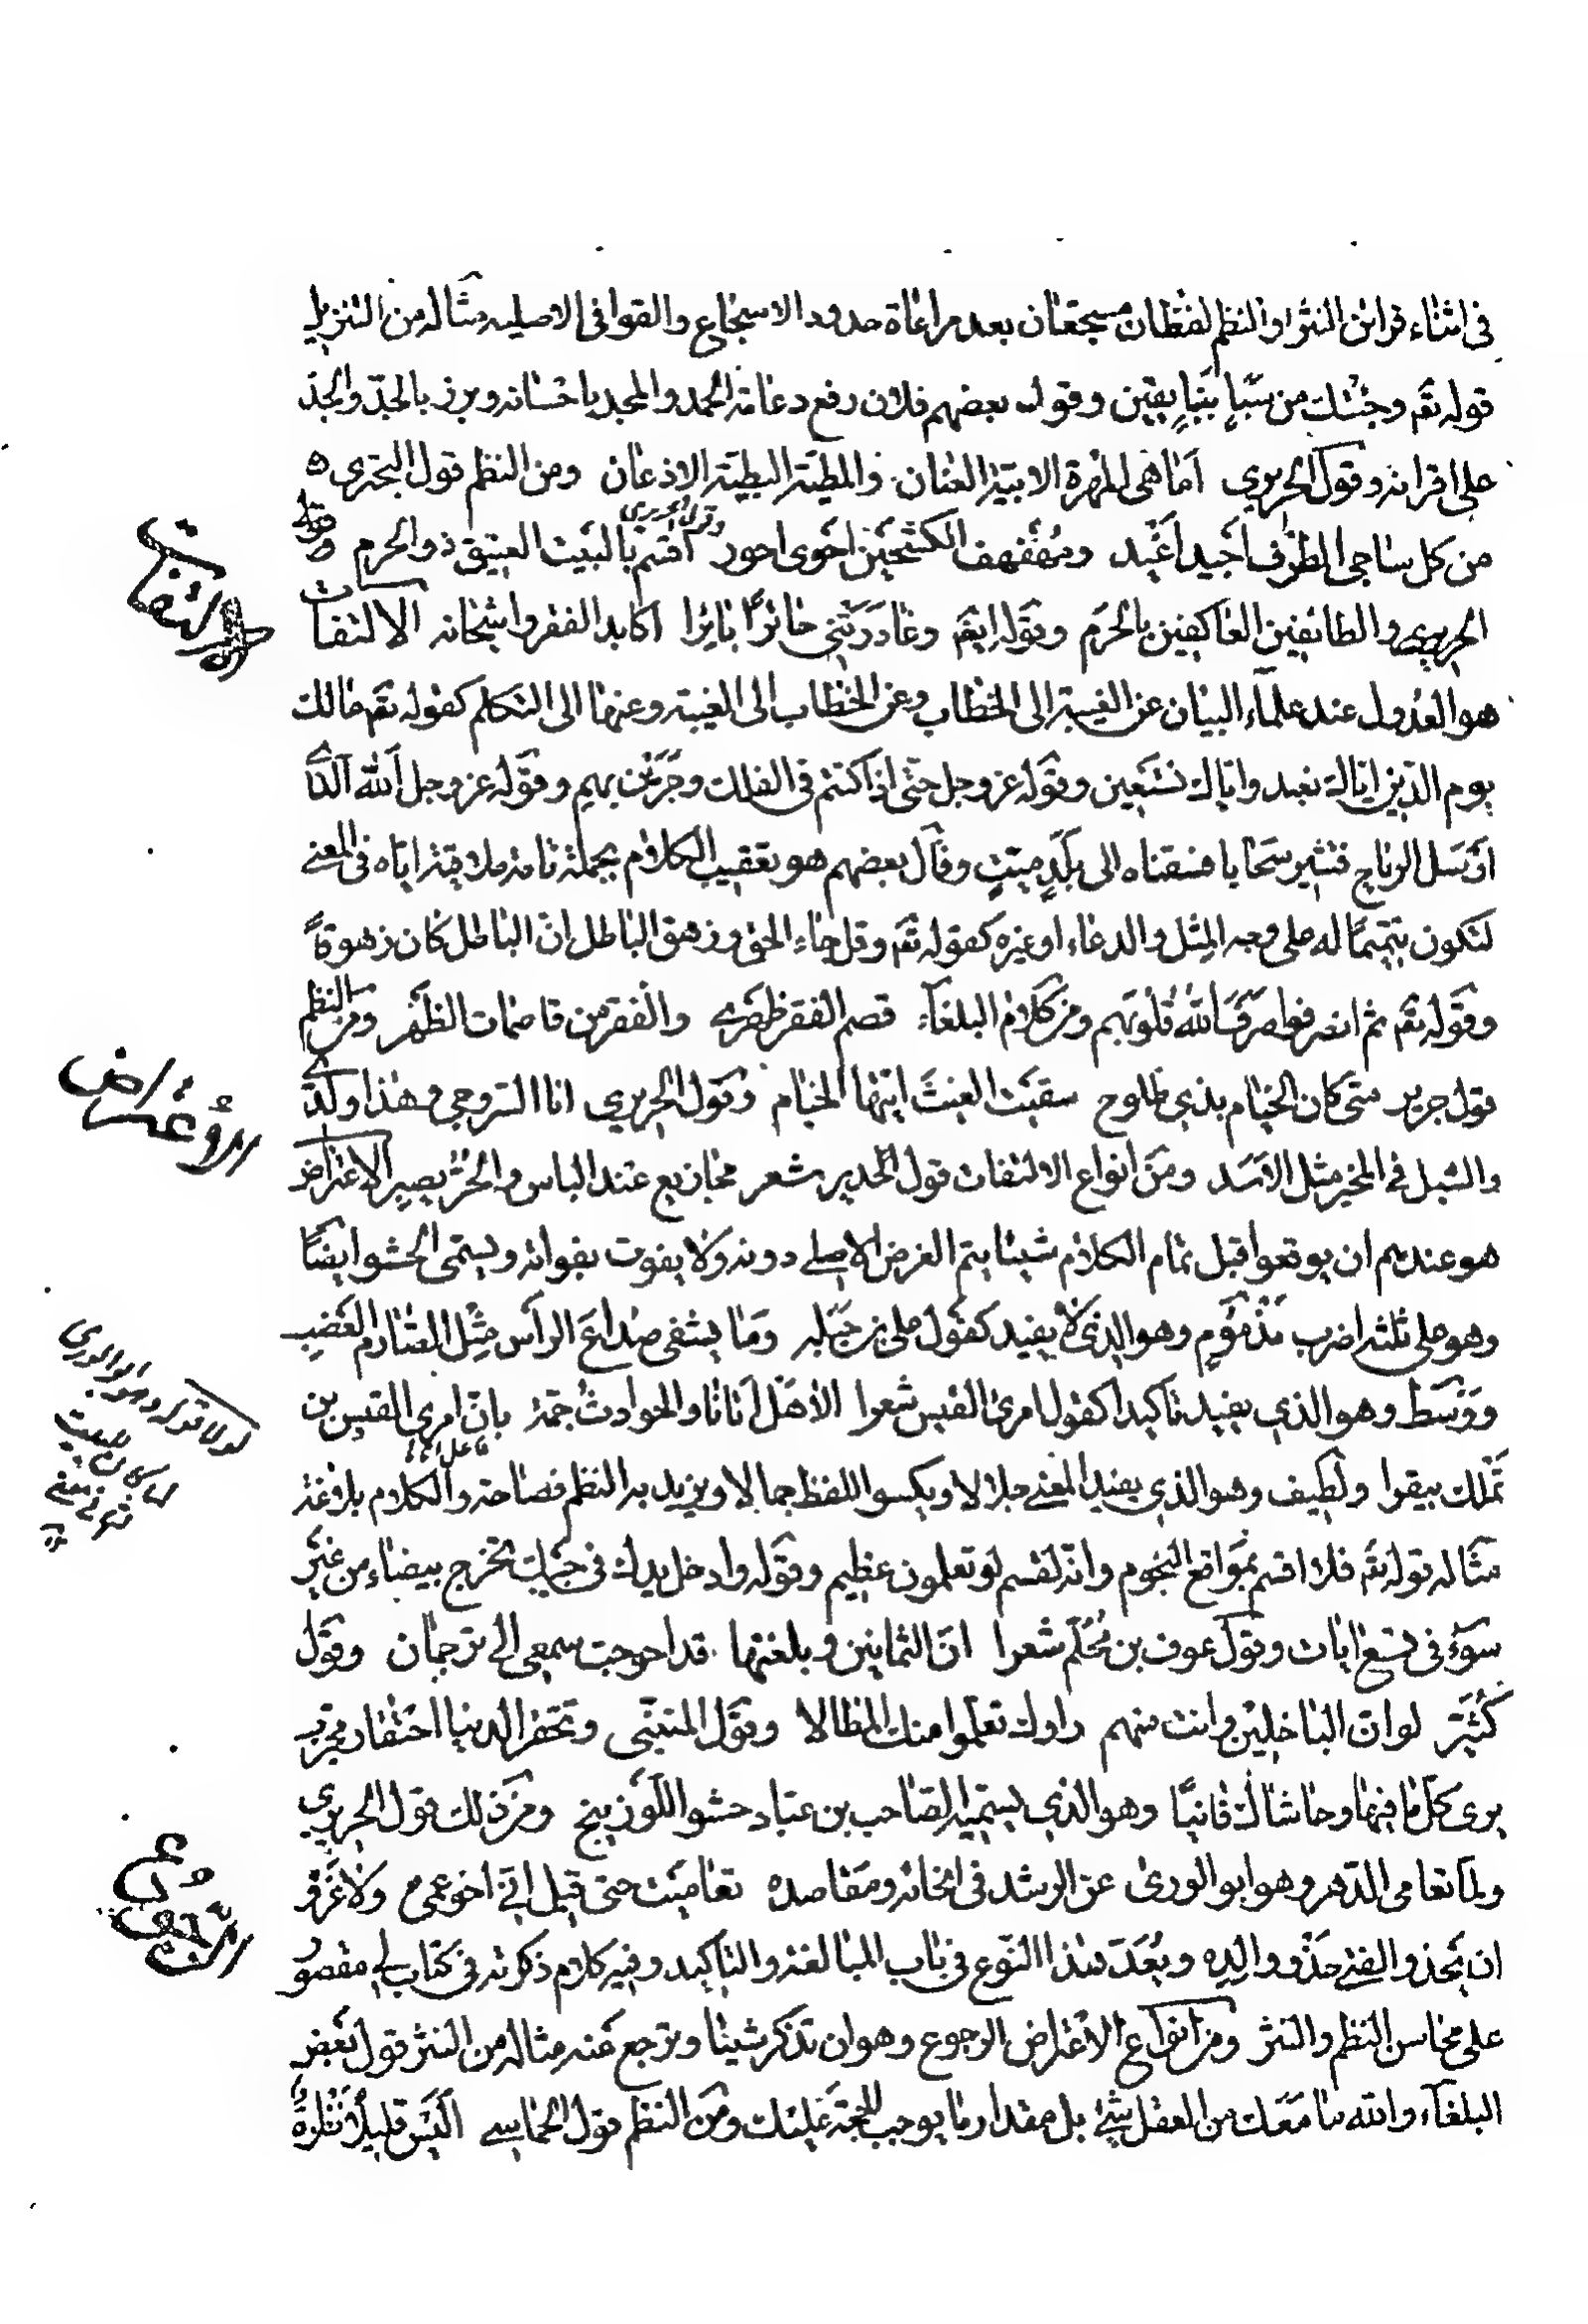 في اثناء قرائن النثر او النظم لفظان مسجعان بعد مراعاة حدود الاسجاع والقوافي الاصلية مثاله من التنزيل
قوله تع‍ وجئتك من سبإ بنبإ يقين وقوله بعضهم فلان رفع دعامة الحمد والمجد باحسانه وبرز بالجدّ والجدّ
على اقرانه وقول الحريري اما هي المهرة الابية العنان والمطية البطية الاذعان ومن النظم قول البحتري ه
من كل ساجي الطرف اجيد اغيد ومهفهف الكشحين احوى احور وقول الحريري اقسم بالبيت العتيق ذو الحرم وقوله
الحريري والطائفين العاكفين بالحرم وقوله ايضا وغادرتني حائرًا بائرا اكابد الفقر واشجانه الالتفات
هو العدول عند علماء البيان عن الغيبة الى الخطاب وعن الخطاب الى الغيبة وعنها الى التكلم كقوله تع‍ مالك
يوم الدين اياك نعبد واياك نستعين وقوله عز وجل حتى اذا كنتم في الفلك وجرين بهم وقوله عز وجل الله الذي
ارسل الرياح فتثير سحابا فسقناه الى بلد ميت وقال بعضهم هو تعقيب الكلام بجملة تامة ملاقية اياه في المعنى
لتكون تتميمًا له على وجه المثل والدعاء او غيره كقوله تع‍ وقل جاء الحق وزهق الباطل ان الباطل كان زهوقا
وقوله تع‍ ثم انصرفوا صرف الله قلوبهم ومن كلام البلغاء قصم الفقر ظهري والفقر من قاصمات الظهر ومن النظم
قول جرير متى كان الخيام بذي طلوح سقيت الغيث ايتها الخيام وقول الحريري انا السروجي وهذا ولدي
والشبل في المخبر مثل الاسد ومن انواع الالتفات قول شعر عند الباس والحر يصبر الاعتراض
هو عندهم ان يوقعوا قبل تمام الكلام شيئا يتم الغرض الاصلي دونه ولا يفوت بفواته ويسمى الحشو ايضًا
وهو على ثلثة اضرب مذموم وهو الذي لا يفيد كقول علي بن جبله وما يشفي صداع الرأس مثل الصارم العضب
ووسط وهو الذي يفيد تاكيدا كقول امرئ القيس شعرا الا هل اتاها والحوادث جمة بان امرئ القيس بن
تملك بيقرا ولطيف وهو الذي يفيد المعنى جلالا ويكسو اللفظ جمالا ويزيد به النظم فصاحة والكلام بلاغة
مثاله قوله تع‍ فلا اقسم بمواقع النجوم وانه لقسم لو تعلمون عظيم وقوله وادخل يدك في جيبك تخرج بيضاء من غير
سوء في تسع ايات وقول عوف بن محلم شعرا ان الثمانين وبلغتها قد احوجت سمعي الى ترجمان وقول
كثير لو ان الباخلين وانت منهم راوك تعلموا منك المطالا وقول المتنبي وتحتقر الدنيا احتقار مجرب
يرى كل ما فيها وحاشاك فانيًا وهو الذي يسميه الصاحب بن عباد حشو اللوزينج ومن ذلك قول الحريري
ولما تعامى الدهر وهو ابو الورى عن الرشد في انحائه ومقاصده تعاميت حتى قيل اني اخو عمى ولا غرو
ان يحذو الفتى حذو والده ويعد هذا النوع في باب المبالغة والتاكيد وفيه كلام ذكرته في كتاب لي مقصور
على محاسن النظم والنثر ومن انواع الاعتراض الرجوع وهو ان تذكر شيئا وترجع عنه مثاله من النثر قول بعض
البلغاء والله ما معك من العقل شيء بل مقدار ما يوجب الحجة عليك ومن النظم قول الحماسي اليس قليلا نظرة
الالتفات
الاعتراض
الرجوع